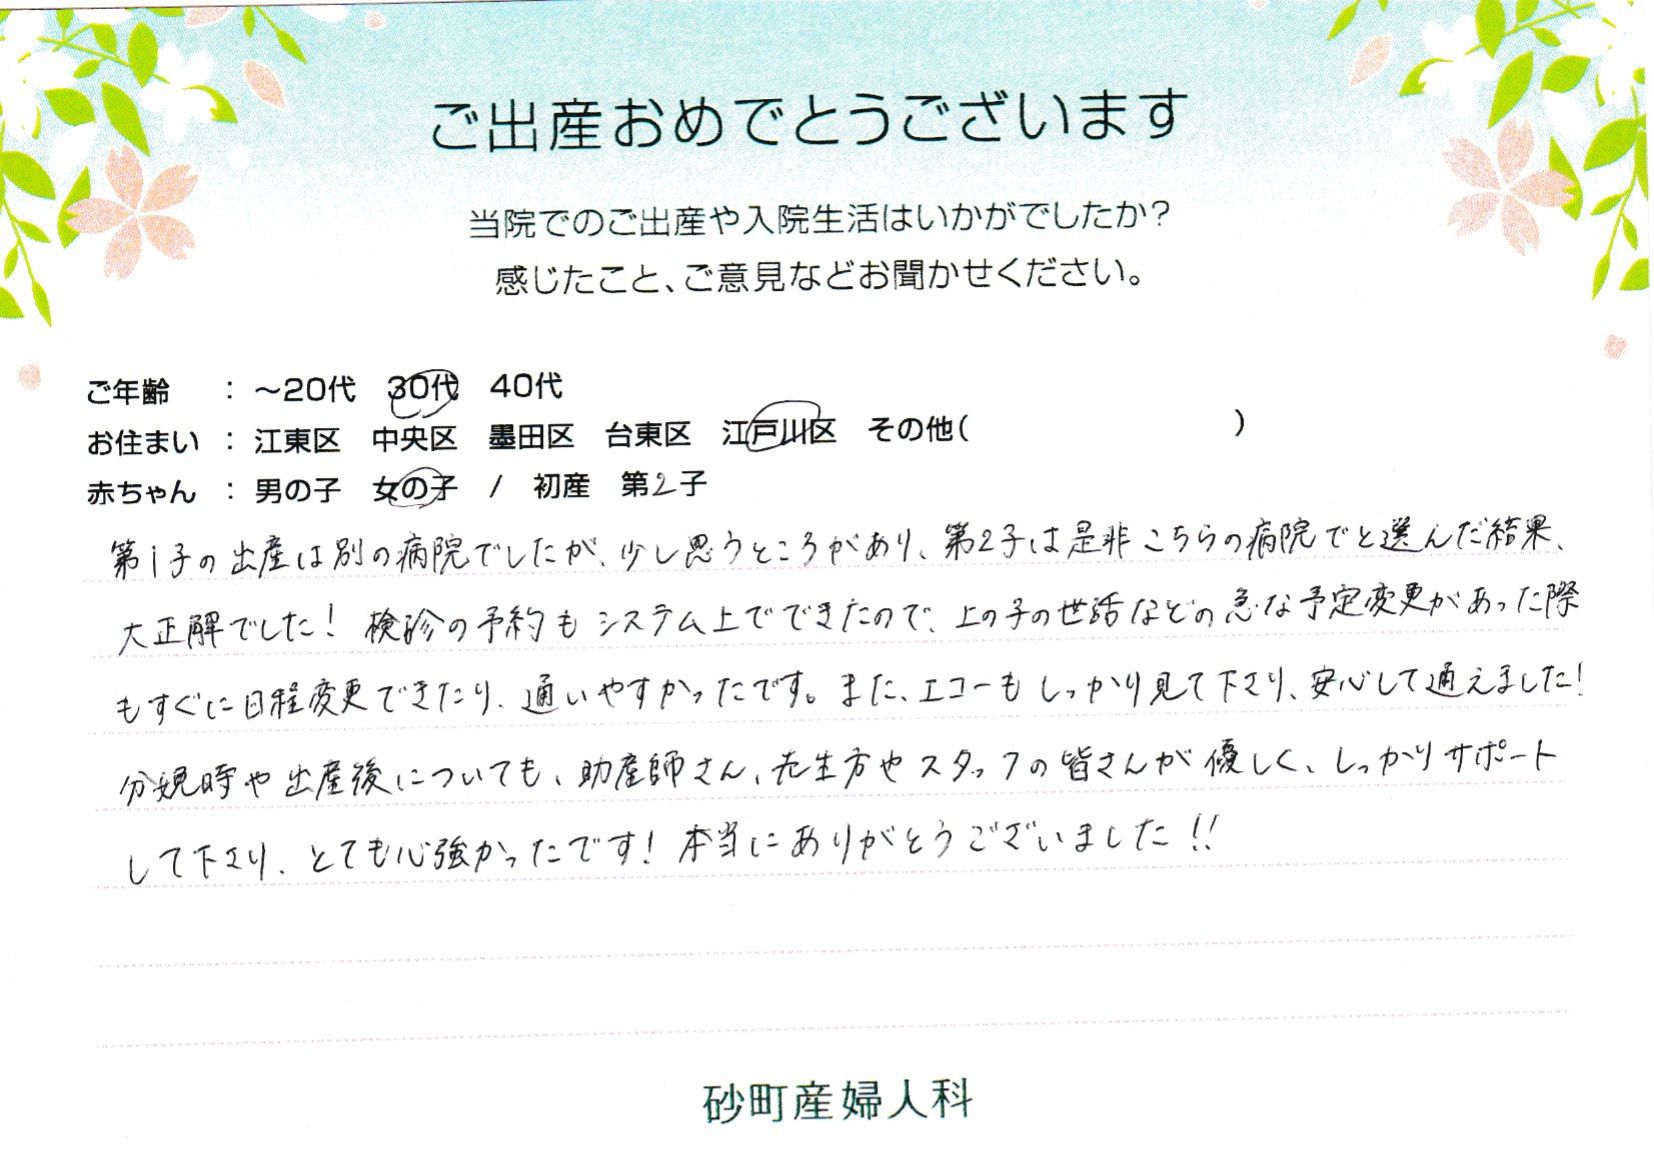 ご出産おめでとうございます
当院でのご出産や入院生活はいかがでしたか?
感じたこと、ご意見などお聞かせください。
ご年齢 : ～20代 30代 40代
お住まい : 江東区 中央区 墨田区 台東区 江戸川区 その他( )
赤ちゃん : 男の子 女の子 / 初産 第2子
第1子の出産は別の病院でしたが、少し思うところがあり、第2子は是非こちらの病院でと選んだ結果、
大正解でした! 検診の予約もシステム上でできたので、上の子の世話などの急な予定変更があった際
もすぐに日程変更できたり、通いやすかったです。また、エコーもしっかり見て下さり、安心して通えました!
分娩時や出産後についても、助産師さん、先生方やスタッフの皆さんが優しく、しっかりサポート
して下さり、とても心強かったです! 本当にありがとうございました!!
砂町産婦人科